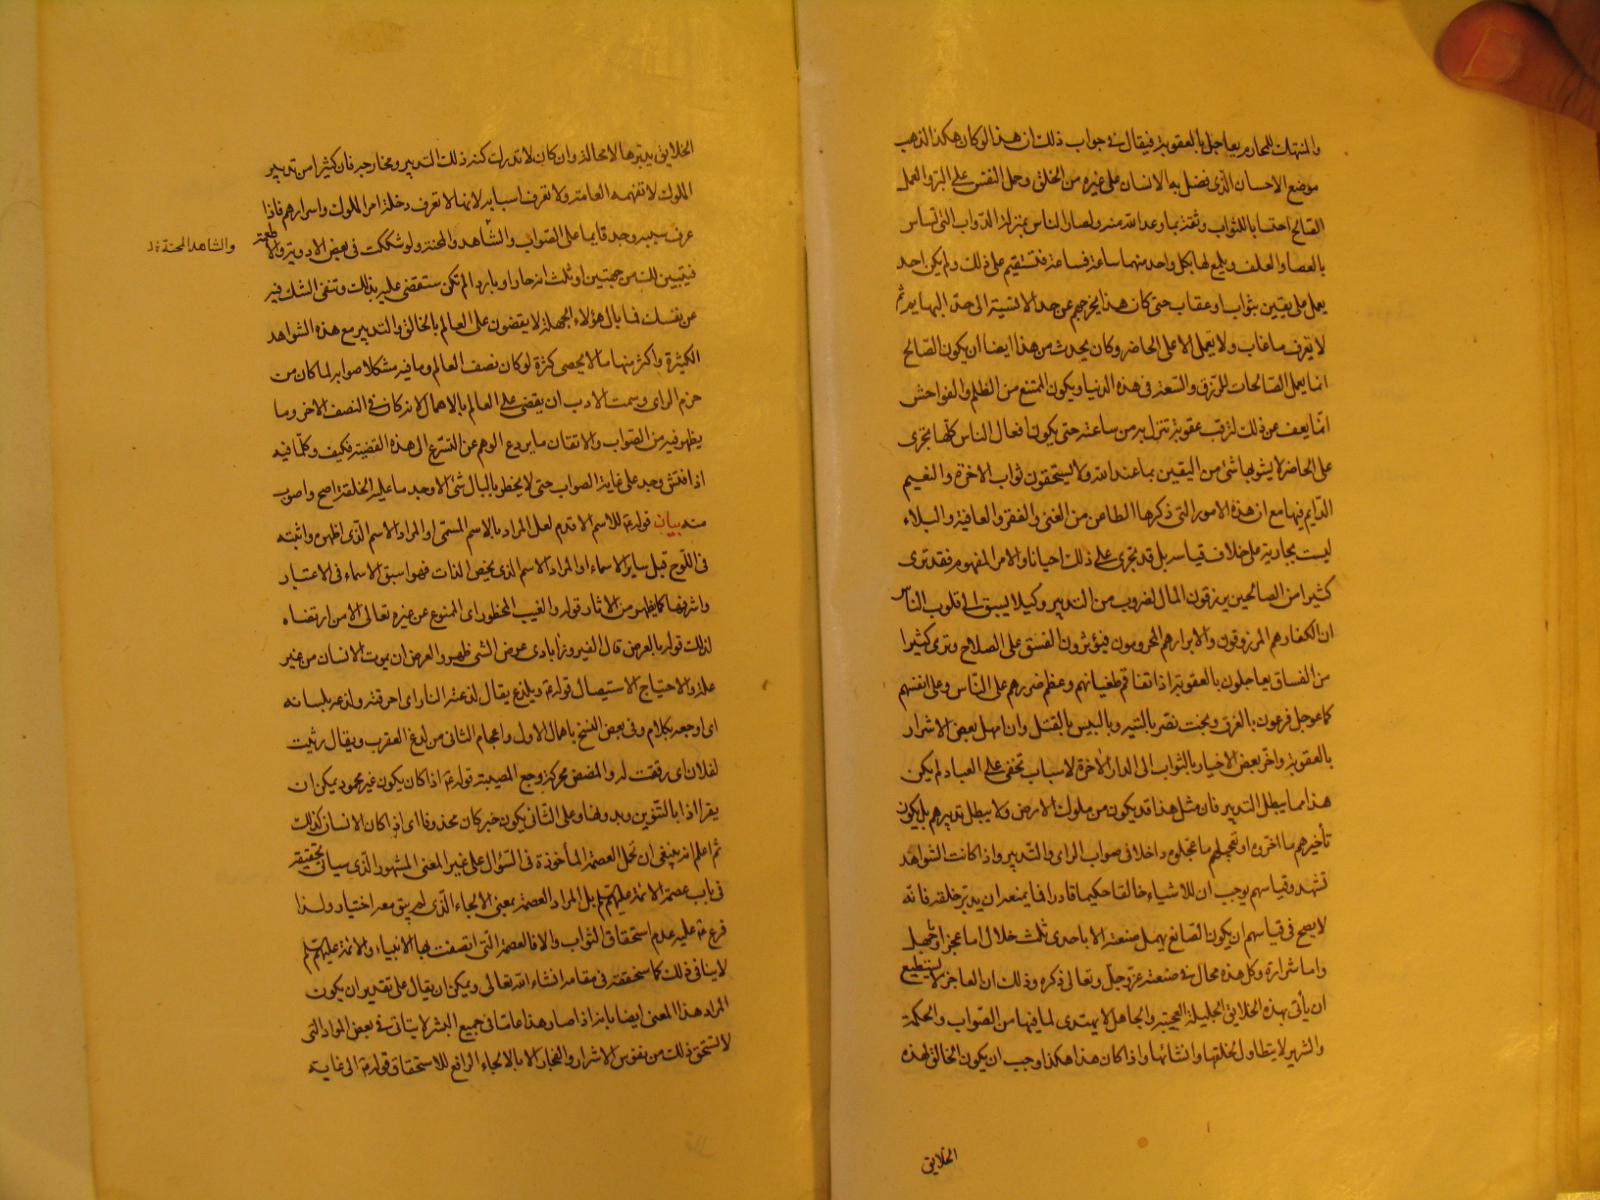 والمنتهك للمحارم يعاجل بالعقوبة فيقال في جواب ذلك ان هذا لو كان هكذا لذهب
موضع الاحسان الذي فضل به الانسان على غيره من الخلق وحمل النفس على البر والعمل
الصالح احتسابا للثواب وثقة بما وعد الله منه ولصار الناس بمنزلة الدواب التي تساس
بالعصا والعلف ويلمع لها بكل واحد منهما ساعة فساعة فتستقيم على ذلك ولم يكن احد
يعمل على يقين بثواب او عقاب حتى كان هذا يخرجهم عن حد الانسية الى حد البهايم ثم
لا يعرف ما غاب ولا يعمل الا على الحاضر وكان يحدث من هذا ايضا ان يكون الصالح
انما يعمل الصالحات للرزق والسعة في هذه الدنيا ويكون الممتنع من الظلم والفواحش
انما يعف عن ذلك لترقب عقوبة تنزل به من ساعته حتى يكون افعال الناس كلها تجري
على الحاضر لا يشوبها شئ من اليقين بما عند الله ولا يستحقون ثواب الاخرة والنعيم
الدايم فيها مع ان هذه الامور التي ذكرها الطاعن من الغنى والفقر والعافية والبلاء
ليست بجارية على خلاف قياسه بل قد تجري على ذلك احيانا والامر المفهوم فقد ترى
كثيرا من الصالحين يرزقون المال لضروب من التدبير وكيلا يسبق الى قلوب الناس
ان الكفار هم المرزوقون والابرار هم المحرومون فيؤثرون الفسق على الصلاح وترى كثيرا
من الفساق يعاجلون بالعقوبة اذا تفاقم طغيانهم وعظم ضررهم على الناس وعلى انفسهم
كما عوجل فرعون بالغرق وبخت نصر بالتيه وبلبيس بالقتل وان امهل بعض الاشرار
بالعقوبة واخر بعض الاخيار بالثواب الى الدار الاخرة لاسباب تخفى على العباد لم يكن
هذا مما يبطل التدبير فان مثل هذا قد يكون من ملوك الارض ولا يبطل تدبيرهم بل يكون
تأخيرهم ما اخروه او تعجيلهم ما عجلوه داخلا في صواب الراى والتدبير واذا كانت الشواهد
تشهد وقياسهم يوجب ان للاشياء خالقا حكيما قادرا فما يمنعه ان يدبر خلقه فانه
لا يصح في قياسهم ان يكون الصانع يهمل صنعته الا باحدى ثلث خلال اما عجز او جهل
واما شرارة وكل هذه محال في صنعته عز وجل وتعالى ذكره وذلك ان العاجز لا يستطيع
ان يأتي بهذه الخلايق الجليلة العجيبة والجاهل لا يهتدى لما فيها من الصواب والحكمة
والشرير لا يتطاول لخلقها وانشائها واذا كان هذا هكذا وجب ان يكون الخالق لهذه
الخلايق
الخلايق يدبرها لا محالة وان كان لا تدرك كنه ذلك التدبير ومخارجه فان كثيرا من تدبير
الملوك لا تفهمه العامة ولا تعرف اسبابه لانها لا تعرف دخلة امر الملوك واسرارهم فاذا
عرف سببه وجد قايما على الصواب والشاهد والمحنة ولو شككت في بعض الادوية والاطعمة
والشاهد المحنة
فيتبين لك من جهتين او ثلث انه حار او بارد الم تكن ستقضي عليه بذلك وتنفى الشك فيه
عن نفسك فما بال هؤلاء الجهلة لا يقضون على العالم بالخالق والتدبير مع هذه الشواهد
الكثيرة واكثر منها ما لا يحصى كثرة لو كان نصف العالم وما فيه مشكلا صوابه لما كان من
حزم الراى وسمت الادب ان يقضى على العالم بالاهمال لانه كان في النصف الاخر وما
يظهر فيه من الصواب والاتقان ما يردع الوهم عن التسرع الى هذه القضية فكيف وكلما فيه
اذا فتش وجد على غاية الصواب حتى لا يخطر بالبال شئ الا وجد ما عليه الخلقة اصح واصوب
منه بيان قوله ع للاسم الاقدم لعل المراد بالاسم المسمى او المراد الاسم الذى اظهره واثبته
في اللوح قبل ساير الاسماء او المراد الاسم الذى يخص الذات فهو اسبق الاسماء في الاعتبار
واشرفها كما يظهر من الاثار قوله والغيب المحظور اى الممنوع عن غيره تعالى الا من ارتضاه
لذلك قوله بالعرض قال الفيروزآبادى عرض الشى ظهر والعرض ان يموت الانسان من غير
علة والاحتياج الاستيصال قوله ع ويلذع يقال لذعته النار اى احرقته ولذعه بلسانه
اى اوجعه بكلام وفي بعض النسخ باهمال الاول واعجام الثانى من لدغ العقرب ويقال رثيت
لفلان اى رققت له والمضض محركة وجع المصيبة قوله ع اذا كان يكون غير محمود يمكن ان
يقرا اذا بالتنوين وبدونها وعلى الثانى يكون خبر كان محذوفا اى اذا كان الانسان كذلك
ثم اعلم انه ينبغي ان تحمل العصمة المأخوذة في السؤال على غير المعنى المشهور الذى سياتى تحقيقه
في باب عصمة الائمة عليهم السلم بل المراد العصمة بمعنى الالجاء الذى لم يبق معه اختيار ولذا
فرع ع عليه عدم استحقاق الثواب والا فالعصمة التى اتصفت بها الانبياء والائمة عليهم السلم
لا ينافى ذلك كما سنحققه في مقامه انشاء الله تعالى ويمكن ان يقال على تقدير ان يكون
المراد هذا المعنى ايضا بانه اذا صار هذا عاما في جميع البشر لا يتاتى في بعض المواد التى
لا تستحق ذلك من نفوس الاشرار والفجار الا بالالجاء الرافع للاستحقاق قوله ع الى غاية